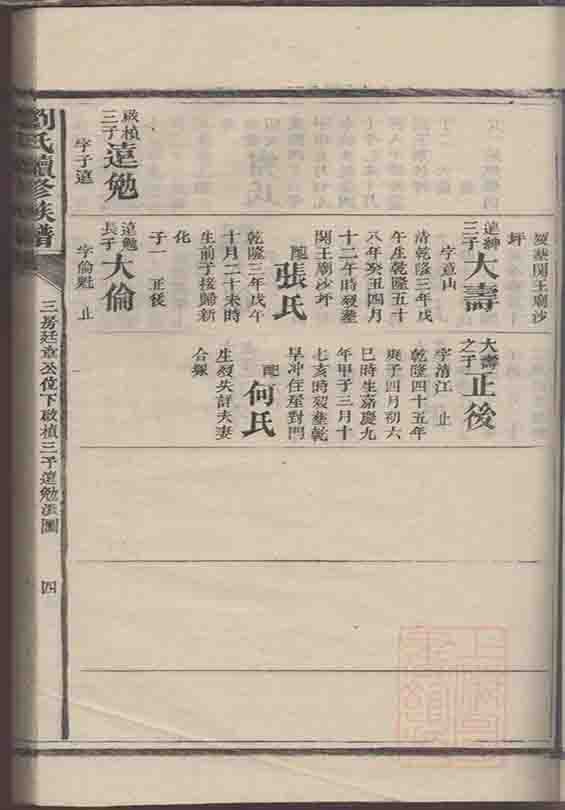 啟楨
三子
遠勉
字子遠
歿葬関王廟沙
坪
遠紳
三子
大壽
字意山
清乾隆三年戊
午生乾隆五十
八年癸丑四月
十二午時歿葬
関王廟沙坪
配
張氏
乾隆三年戊午
十月二十未時
生前子接歸新
化
子一 正後
遠勉
長子
大倫
字倫魁 止
大壽
之子
正後
字清江 止
乾隆四十五年
庚子四月初六
巳時生嘉慶九
年甲子三月十
七亥時歿葬乾
旱冲住至對門
配
何氏
生歿失詳夫妻
合塚
劉氏續修族譜
三房廷章公位下啟楨三子遠勉派圖
四